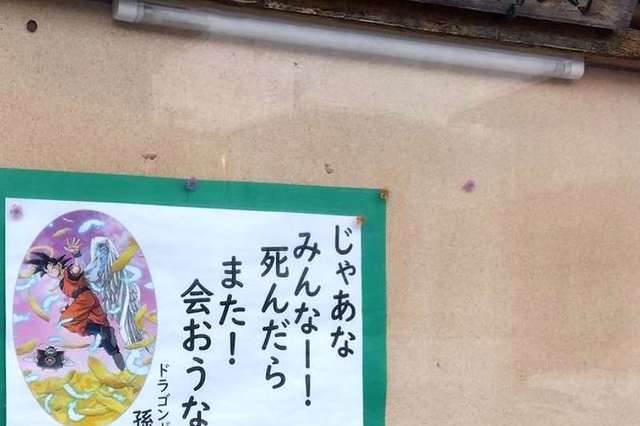 じゃあな
みんなー！
死んだら
また！
会おうな
ドラゴン
孫